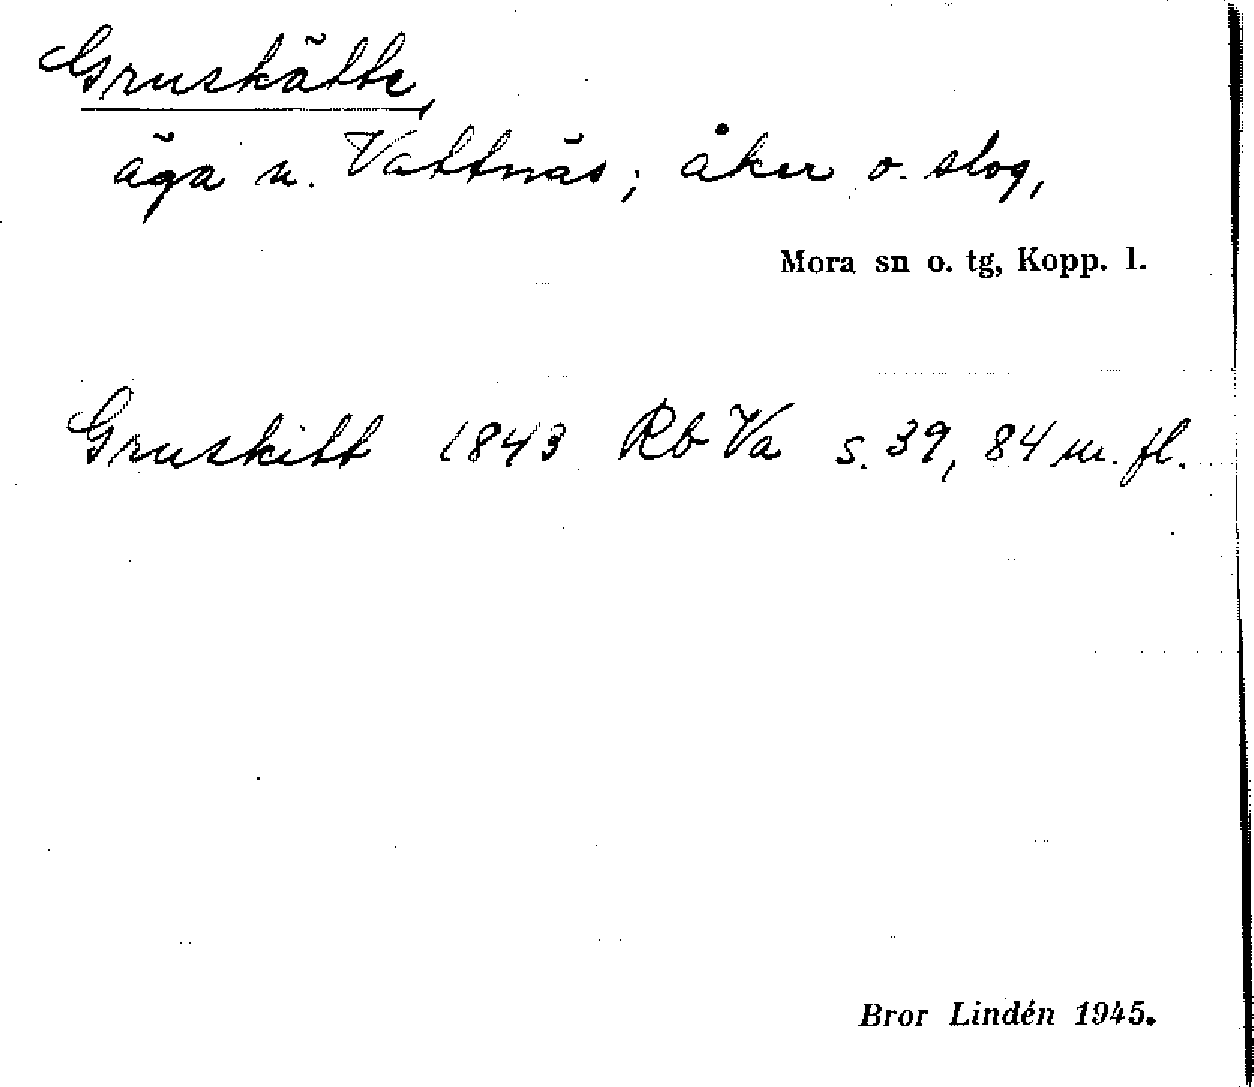 Gruskätte,
äga u. Vattnäs; åker o. slog,
Mora sn o. tg, Kopp. l.
Gruskitt 1843 Rb Va s. 39, 84 m. fl.
Bror Lindén 1945.